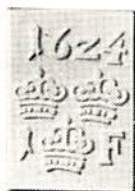 1624
I F